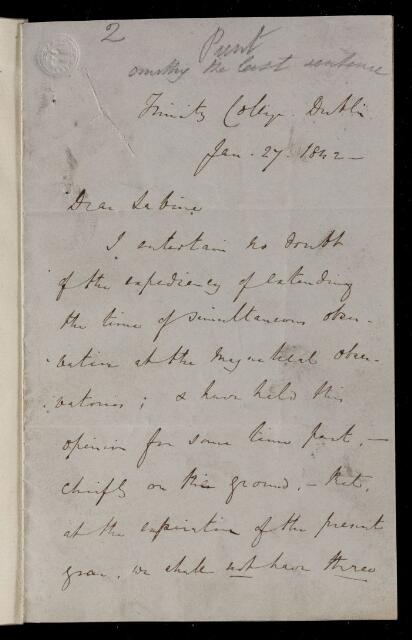 2
Print
omitting the last sentence
Trinity College Dublin
Jan. 27 1842 -
Dear Sabine
I entertain no doubt
of the expediency of extending
the time of simultaneous obser-
vation at the Magnetical Obser-
vatories ; & have held this
opinion for some time past, -
chiefly on this ground, - that,
at the expiration of the present
year, we shall not have three